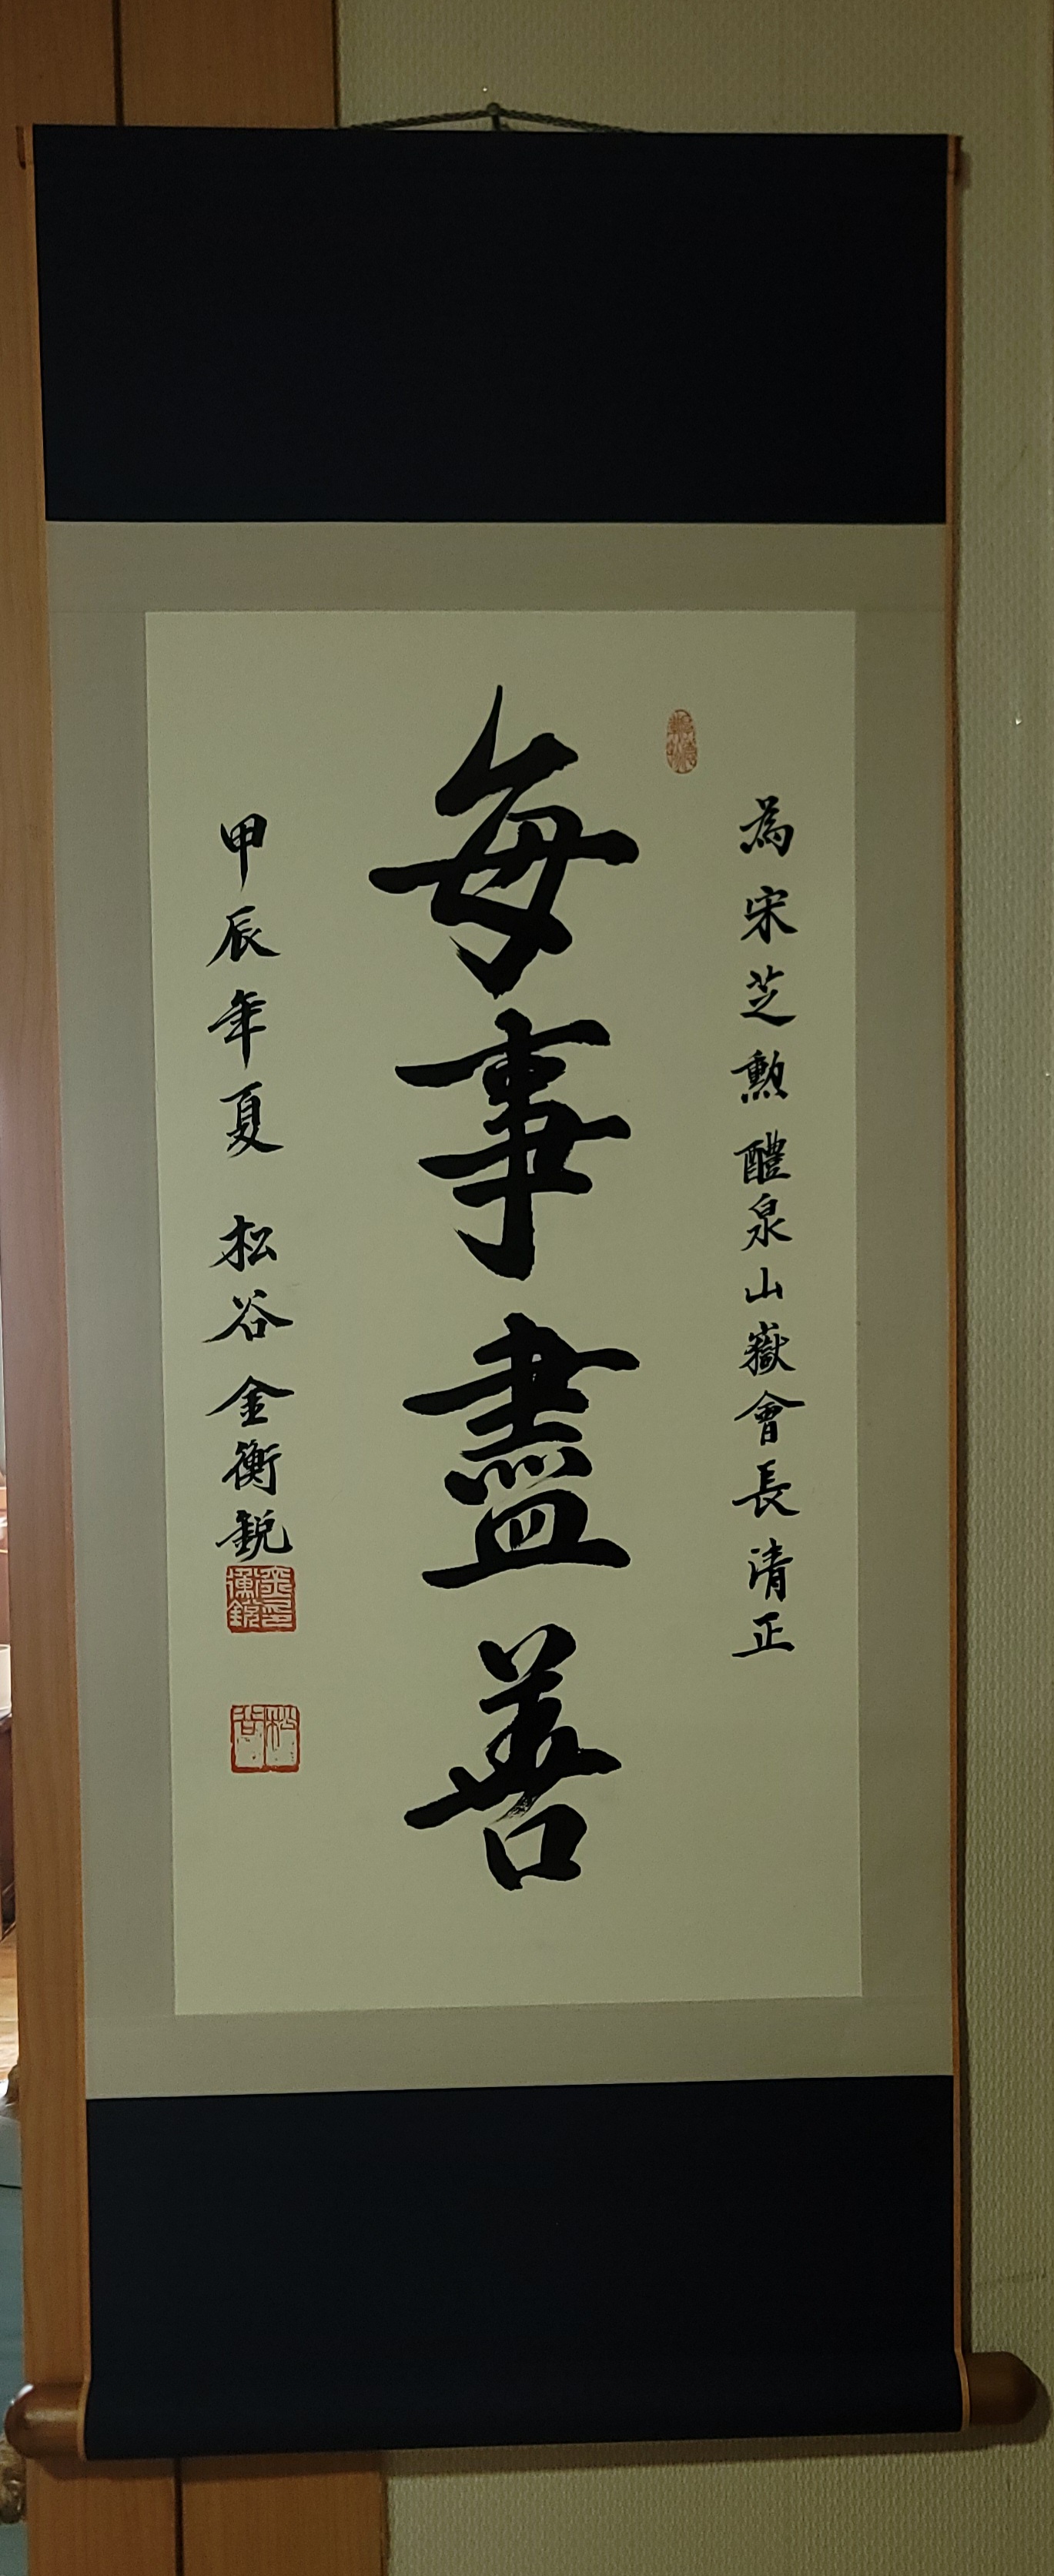 為宋芝勲醴泉山嶽會長清正
每事盡善
甲辰年夏 松谷 金衡銳